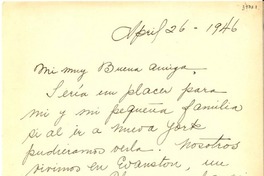 April 26 - 1946
Mi muy Buena amiga,
Sería un placer para
mi y mi pequeña familia
si al ir a nueva york
pudieramos verla. Nosotros
vivimos en Evanston, un